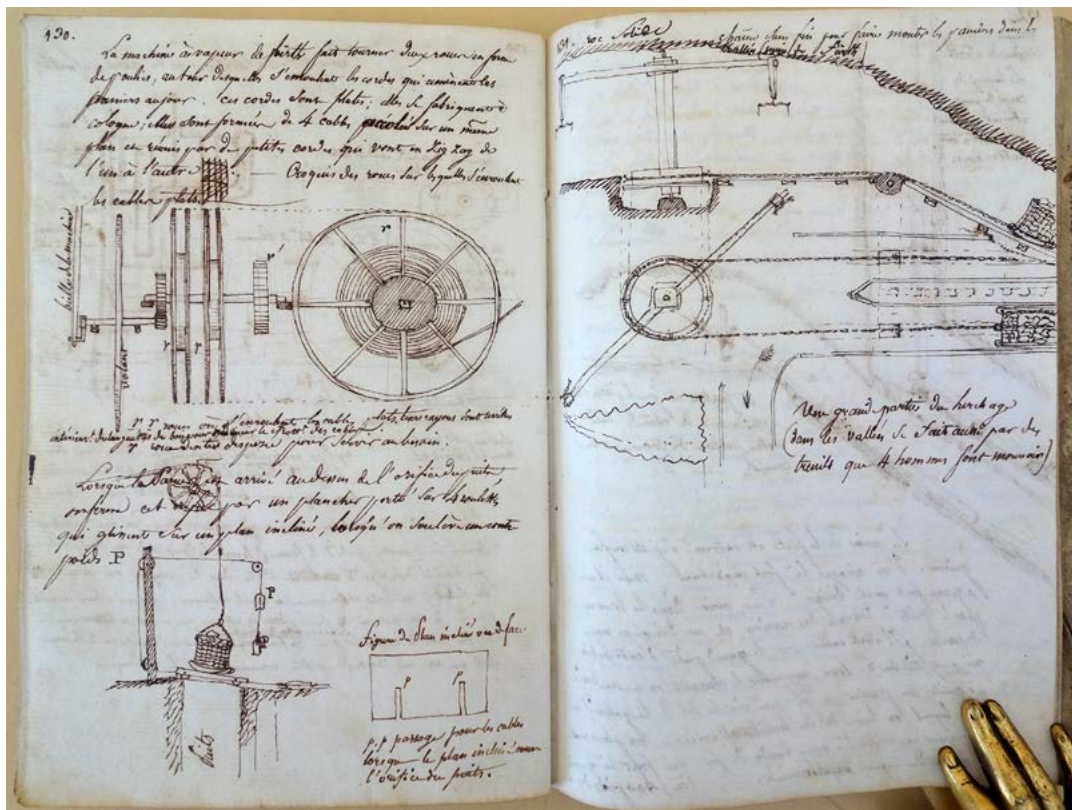 430.
La machine à vapeur de fait tourner deux roues en forme
de poulies, autour desquelles s'enroulent les cordes qui amènent les
paniers au jour. ces cordes sont plates; elles se fabriquent à
cologne; elles sont formées de 4 cables sur un même
plan et réunis par de petites cordes qui vont en zig zag de
l'un à l'autre. — Croquis des roues sur lesquelles s'enroulent
les cables plats.
volant
r
r'
r
r
r r roues où s'enroulent les cables
pour servir au besoin.
Lorsque le panier est arrivé au dessus de l'orifice du puits
on ferme cet orifice par un plancher porté sur 4 roulettes
qui glissent sur un plan incliné, lorsqu'on soulève un contre
poids P
P
Puits
figure du plan incliné vu de face
p
p
p.p passage pour les cables
lorsque le plan incliné couvre
l'orifice du puits.
431. roc solide
chaine sans fin pour faire monter les paniers dans les
Une grand partie du herchage
(dans les vallées se fait aussi par des
treuils que 4 hommes font mouvoir)